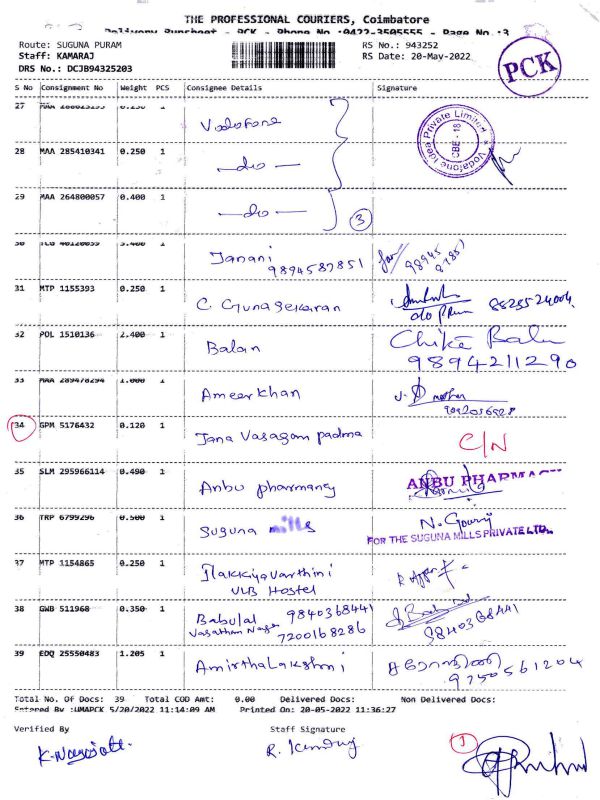 THE PROFESSIONAL COURIERS, Coimbatore
Delivery Runsheet - PCK - Phone No :0422-3505555 - Page No :3
Route: SUGUNA PURAM
RS No.: 943252
Staff: KAMARAJ
RS Date: 20-May-2022
DRS No.: DCJB94325203
PCK
S No Consignment No Weight PCS Consignee Details Signature
27 MAA 0.250 1 Vodofone
Vodafone Idea Private Limited
CBE - 18
28 MAA 285410341 0.250 1 —do—
29 MAA 264800057 0.400 1 —do—
3
30 3.400 1 Janani
9894587851
98945
87851
31 MTP 1155393 0.250 1 C. Gunasekaran
8825524004
32 POL 1510136 2.400 1 Balan
Balu
9894211290
33 MAA 289478294 1.000 1 Ameerkhan
34 GPM 5176432 0.120 1 Jana Vasagam padma
C/N
35 SLM 295966114 0.490 1 Anbu pharmancy
ANBU PHARMACY
36 TRP 6799296 0.500 1 Suguna mills
N. Gowri
FOR THE SUGUNA MILLS PRIVATE LTD.
37 MTP 1154865 0.250 1 Ilakkiyavarthini
VLB Hostel
38 GWB 511968 0.350 1 Babulal 9840368441
Vasathan Nagar 7200168286
9840368441
39 EDQ 25550483 1.205 1 Amirthalakshmi
9750561204
Total No. Of Docs: 39 Total COD Amt: 0.00 Delivered Docs: Non Delivered Docs:
Entered By :UMAPCK 5/20/2022 11:14:09 AM Printed On: 20-05-2022 11:36:27
Verified By
Staff Signature